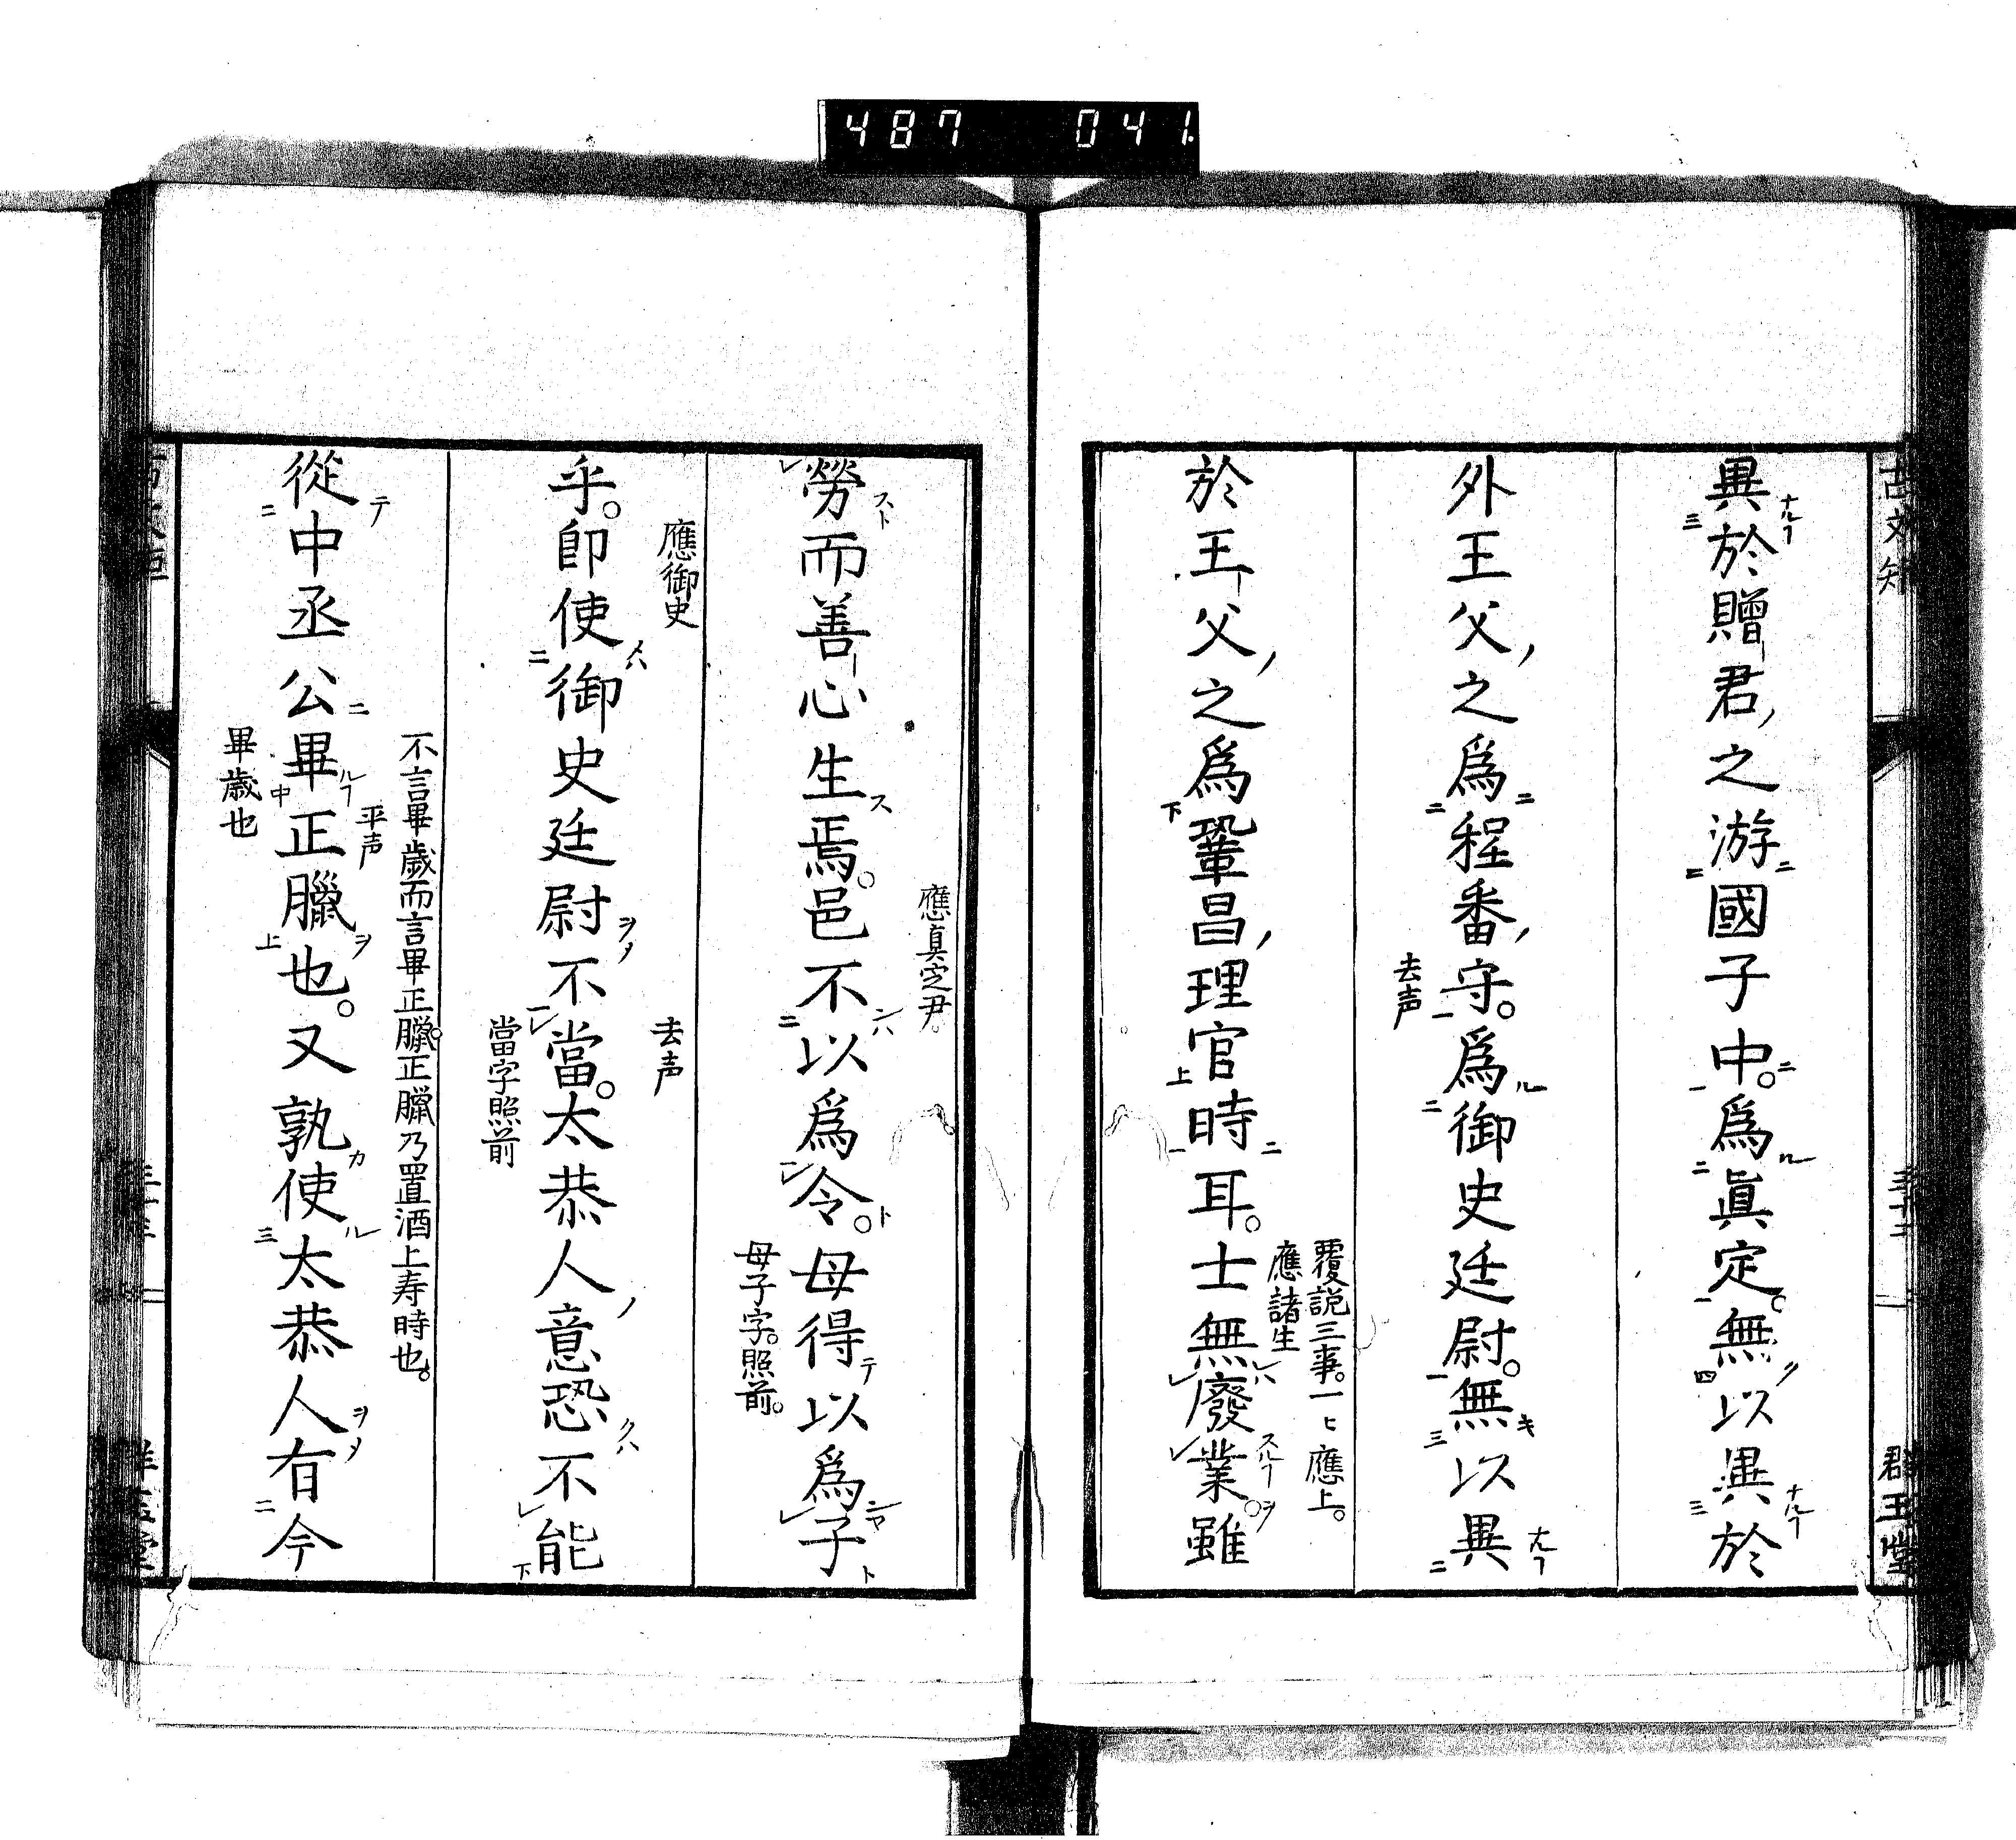 487 041.
異於贈君之游國子中。為眞定。無以異於
外王父之為程番守。為御史廷尉。無以異
去声
於王父之為鞏昌理官時耳。士無廢業。雖
覆説三事。一ヒ應上。
應諸生
群玉堂
應真定尹。
勞而善心生焉。邑不以為令。母得以為子
母子字。照前。
應御史
去声
乎。即使御史廷尉不當。太恭人意恐不能
當字照前
不言畢歲而言畢正臘。正臘乃置酒上寿時也。
平声
從中丞公畢正臘也。又孰使太恭人有今
畢歳也